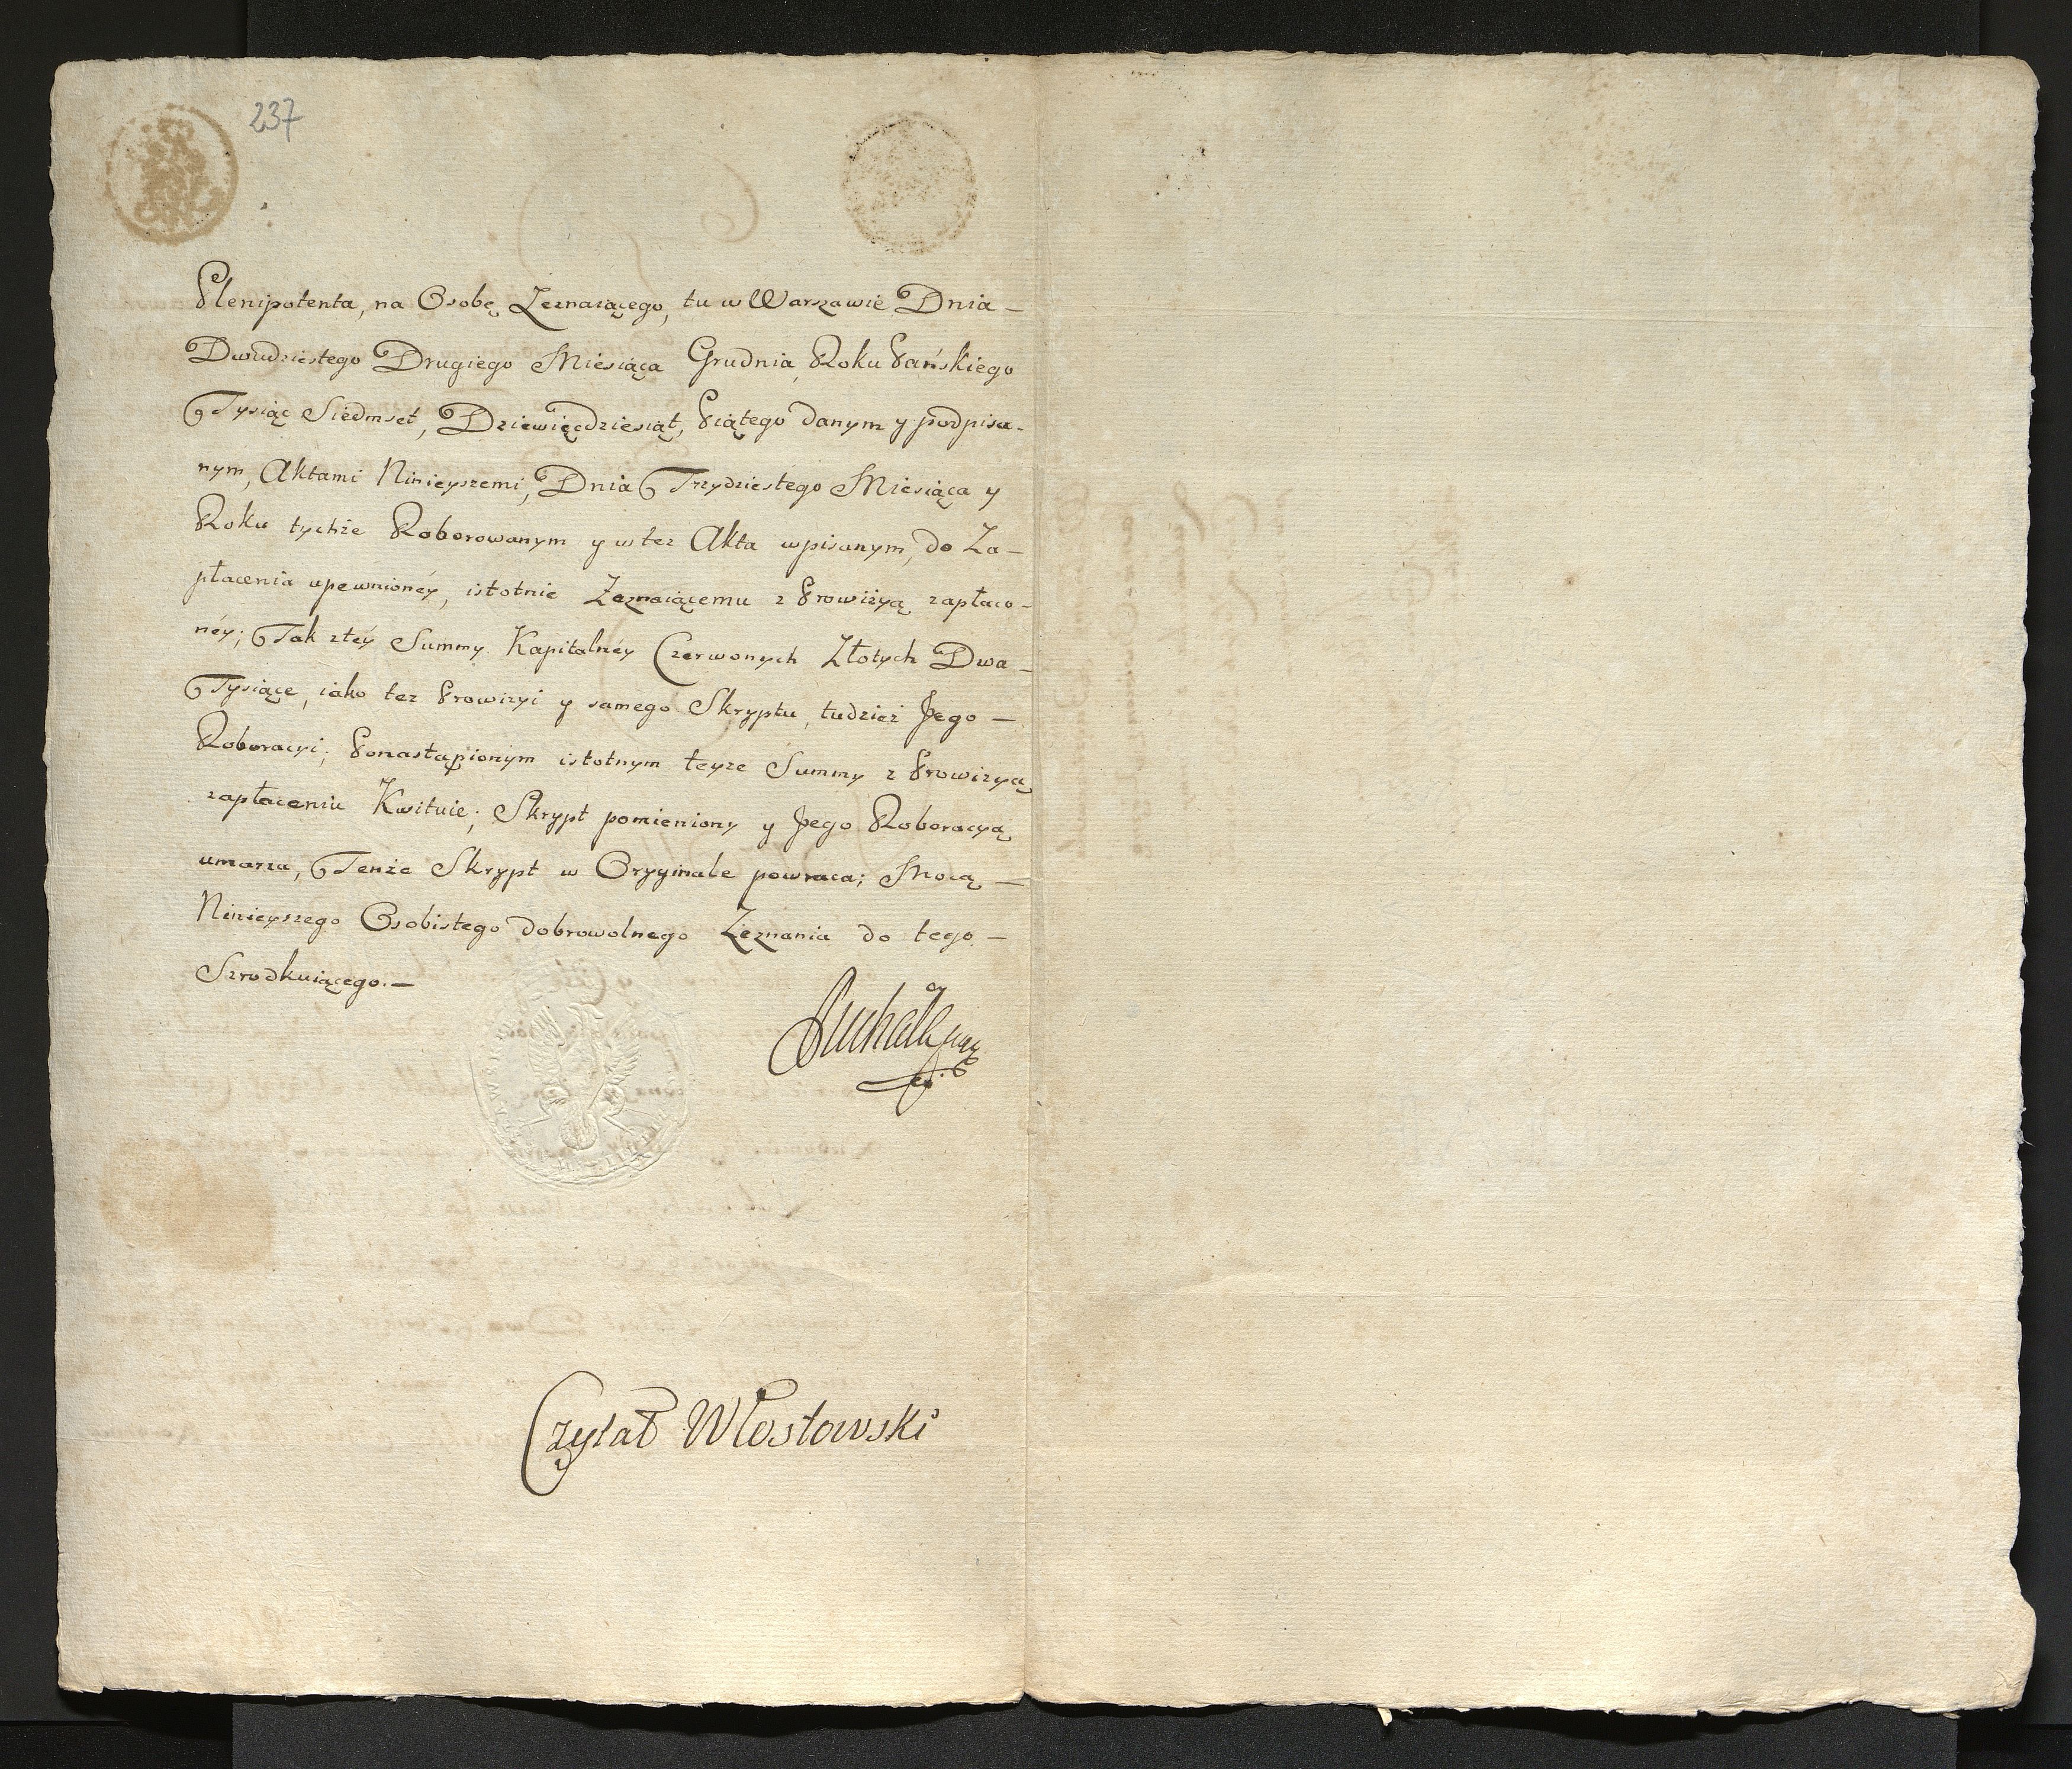 237
Plenipotenta, na Osobę Zeznaiącego, tu w Warszawie Dnia —
Dwudziestego Drugiego Miesiąca Grudnia, Roku Pańskiego
Tysiąc Siedmset, Dziewięćdziesiąt, Piątego danym y podpisa-
nym, Aktami Ninieyszemi, Dnia Trzydziestego Miesiąca y
Roku tychże Roborowanym y w też Akta wpisanym, do Za-
płacenia upewnionéy, istotnie Zeznaiącemu z Prowizyą zapłaco-
néy; Tak z téy Summy Kapitalnéy Czerwonych Złotych Dwa —
Tysiące, iako też Prowizyi y samego Skryptu, tudzież Jego —
Roboracyi; Ponastąpionym istotnym teyże Summy z Prowizyą
zapłaceniu Kwituie; Skrypt pomieniony y Jego Roboracyą
umarza, Tenże Skrypt w Oryginale powraca; Mocą —
Ninieyszego Osobistego dobrowolnego Zeznania do tego —
Szrodkuiącego. —
Czytał Włostowski